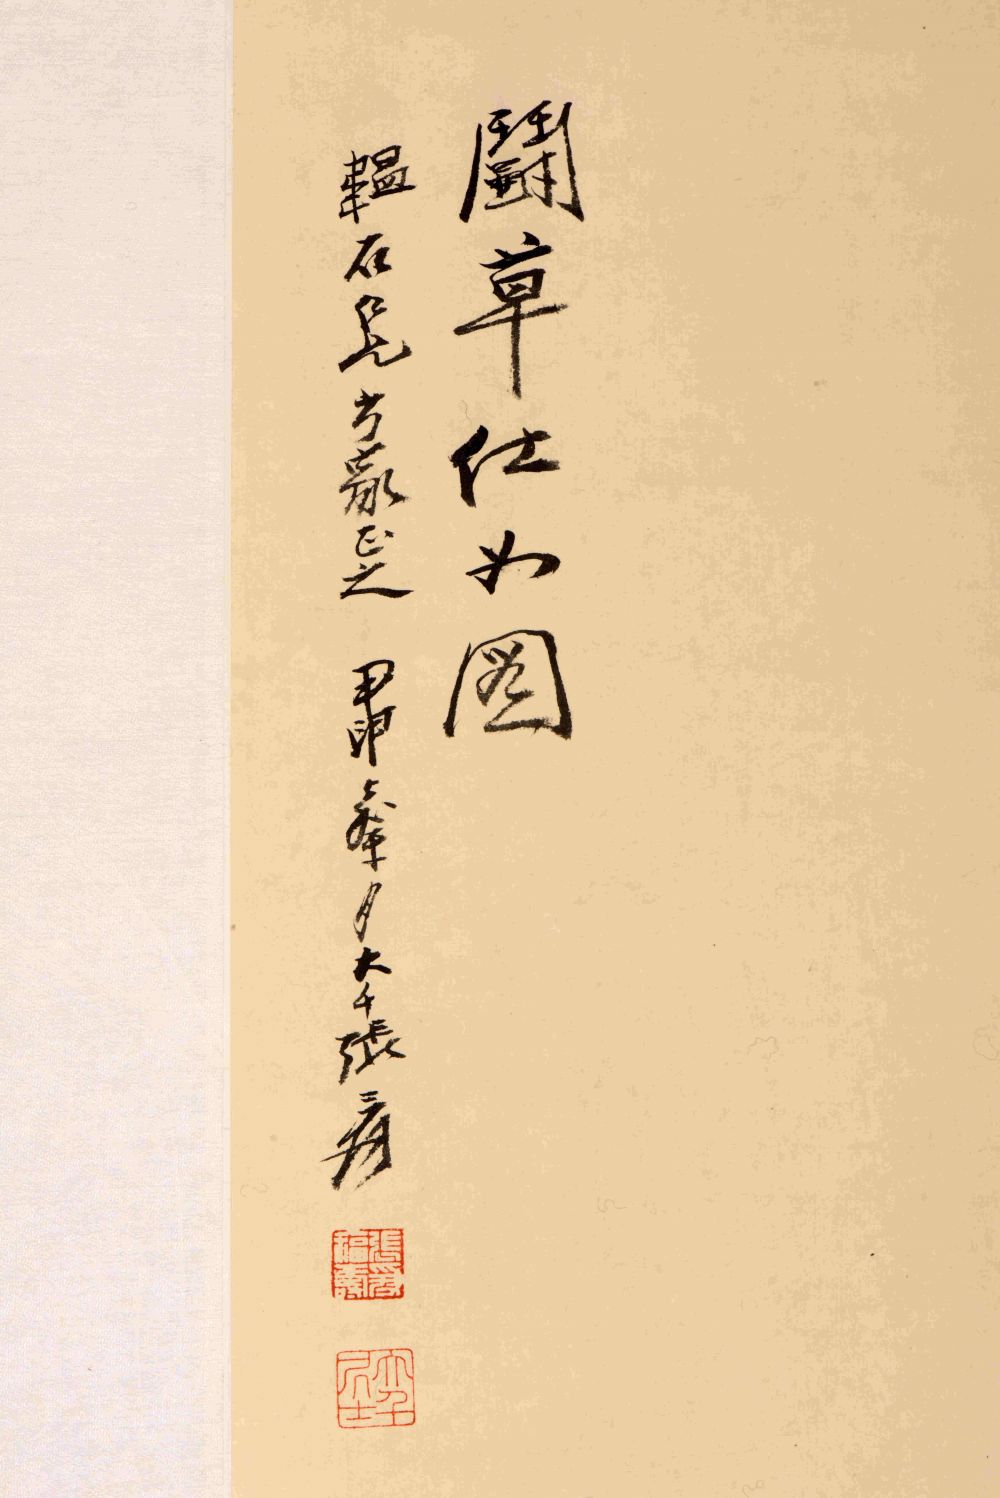 鬭草仕女圖
韞石兄方家正之 甲申峯月大千張爰
張爰福壽
大千居士